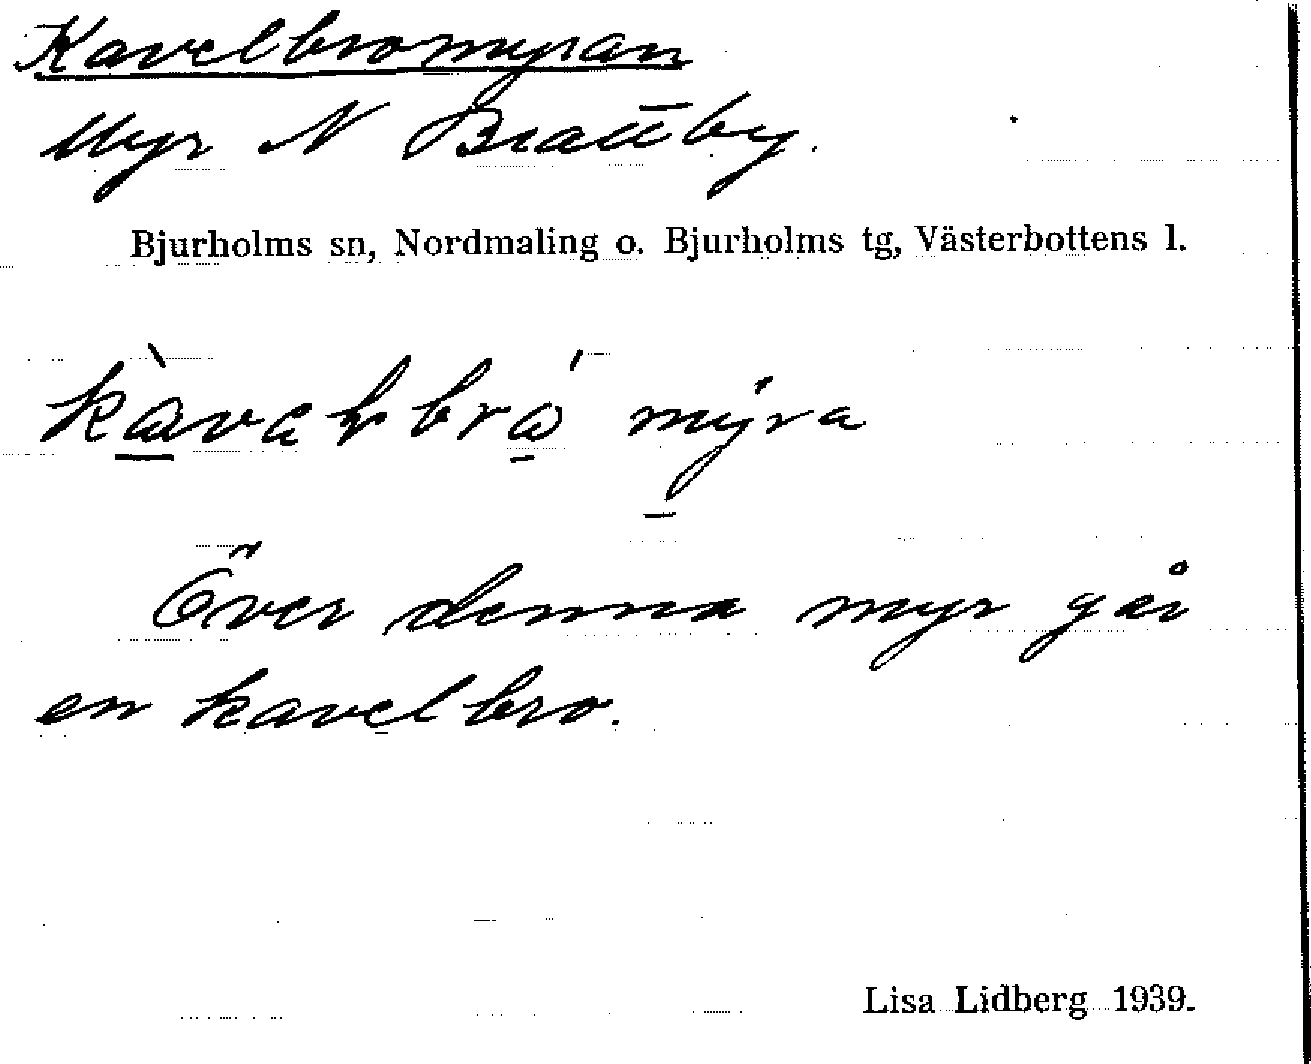 Kavelbromyran
Myr N Brattby.
Bjurholms sn, Nordmaling o. Bjurholms tg, Västerbottens l.
myra
Över denna myr går
en kavelbro.
Lisa Lidberg 1939.